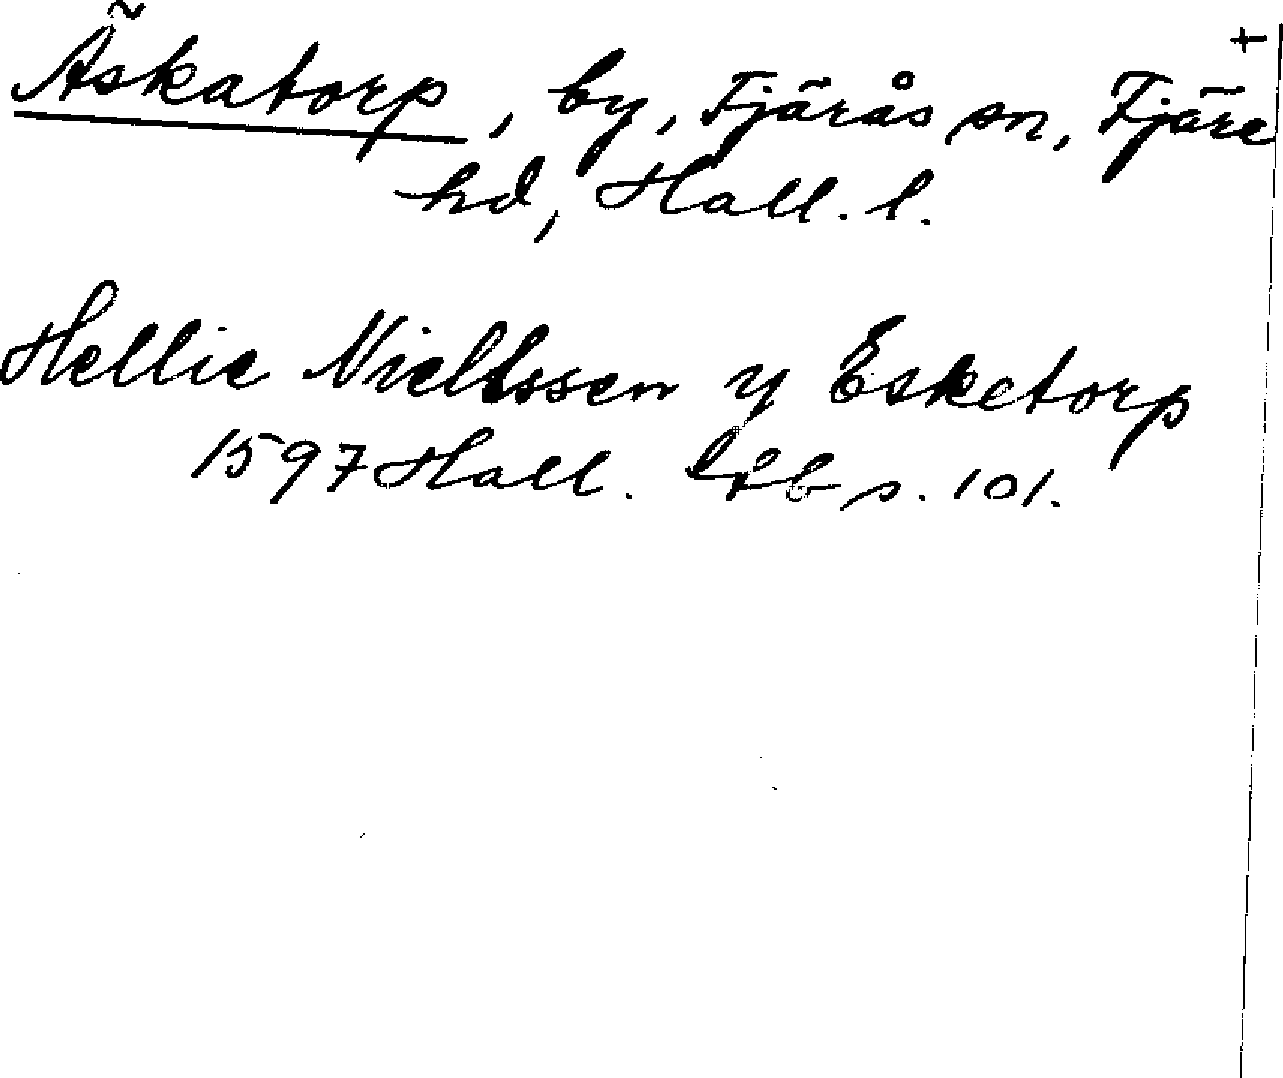 Äskatorp, by, Fjärås sn, Fjäre
hd, Hall. l.
Hellie Nielssen y Esketorp
1597 Hall. s. 101.